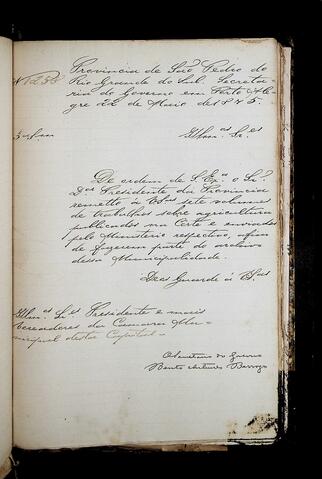 Provincia de São Pedro do
Rio Grande do Sul. Secreta-
ria do Governo em Porto Ale-
gre 22 de Maio de 1875.
Illm.os Sr.es
De ordem de S. Ex.a o Sr.
Presidente da Provincia
remetto á V.S.as sete volumes
de trabalhos sobre agricultura
publicados na Corte e enviados
pelo Ministerio respectivo, afim
de fazerem parte do archivo
dessa Municipalidade.
Deos Guarde á V.S.as
Illm.os Sr.es Presidente e mais
Vereadores da Camara Mu-
nicipal desta Capital
do Governo
Bento